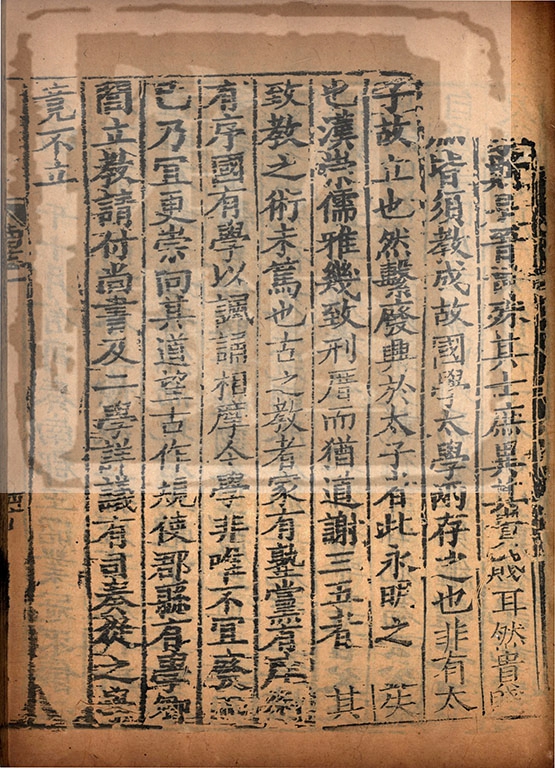 斯是晉世殊其士庶異其貴賤耳然貴賤
皆須教成故國學太學兩存之也非有太
子故立也然繫廢興於太子者此永明之失
也漢崇儒雅幾致刑厝而猶道謝三五者其
致教之術未篤也古之教者家有塾黨有庠
有序國有學以諷誦相摩今學非唯不宜廢
已乃宜更崇向其道望古作規使郡縣有學鄉
閭立教請付尚書及二學詳議有司奏從之學
竟不立